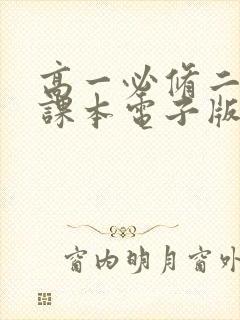 高一必修二
課本電子版
窗内明月窗外